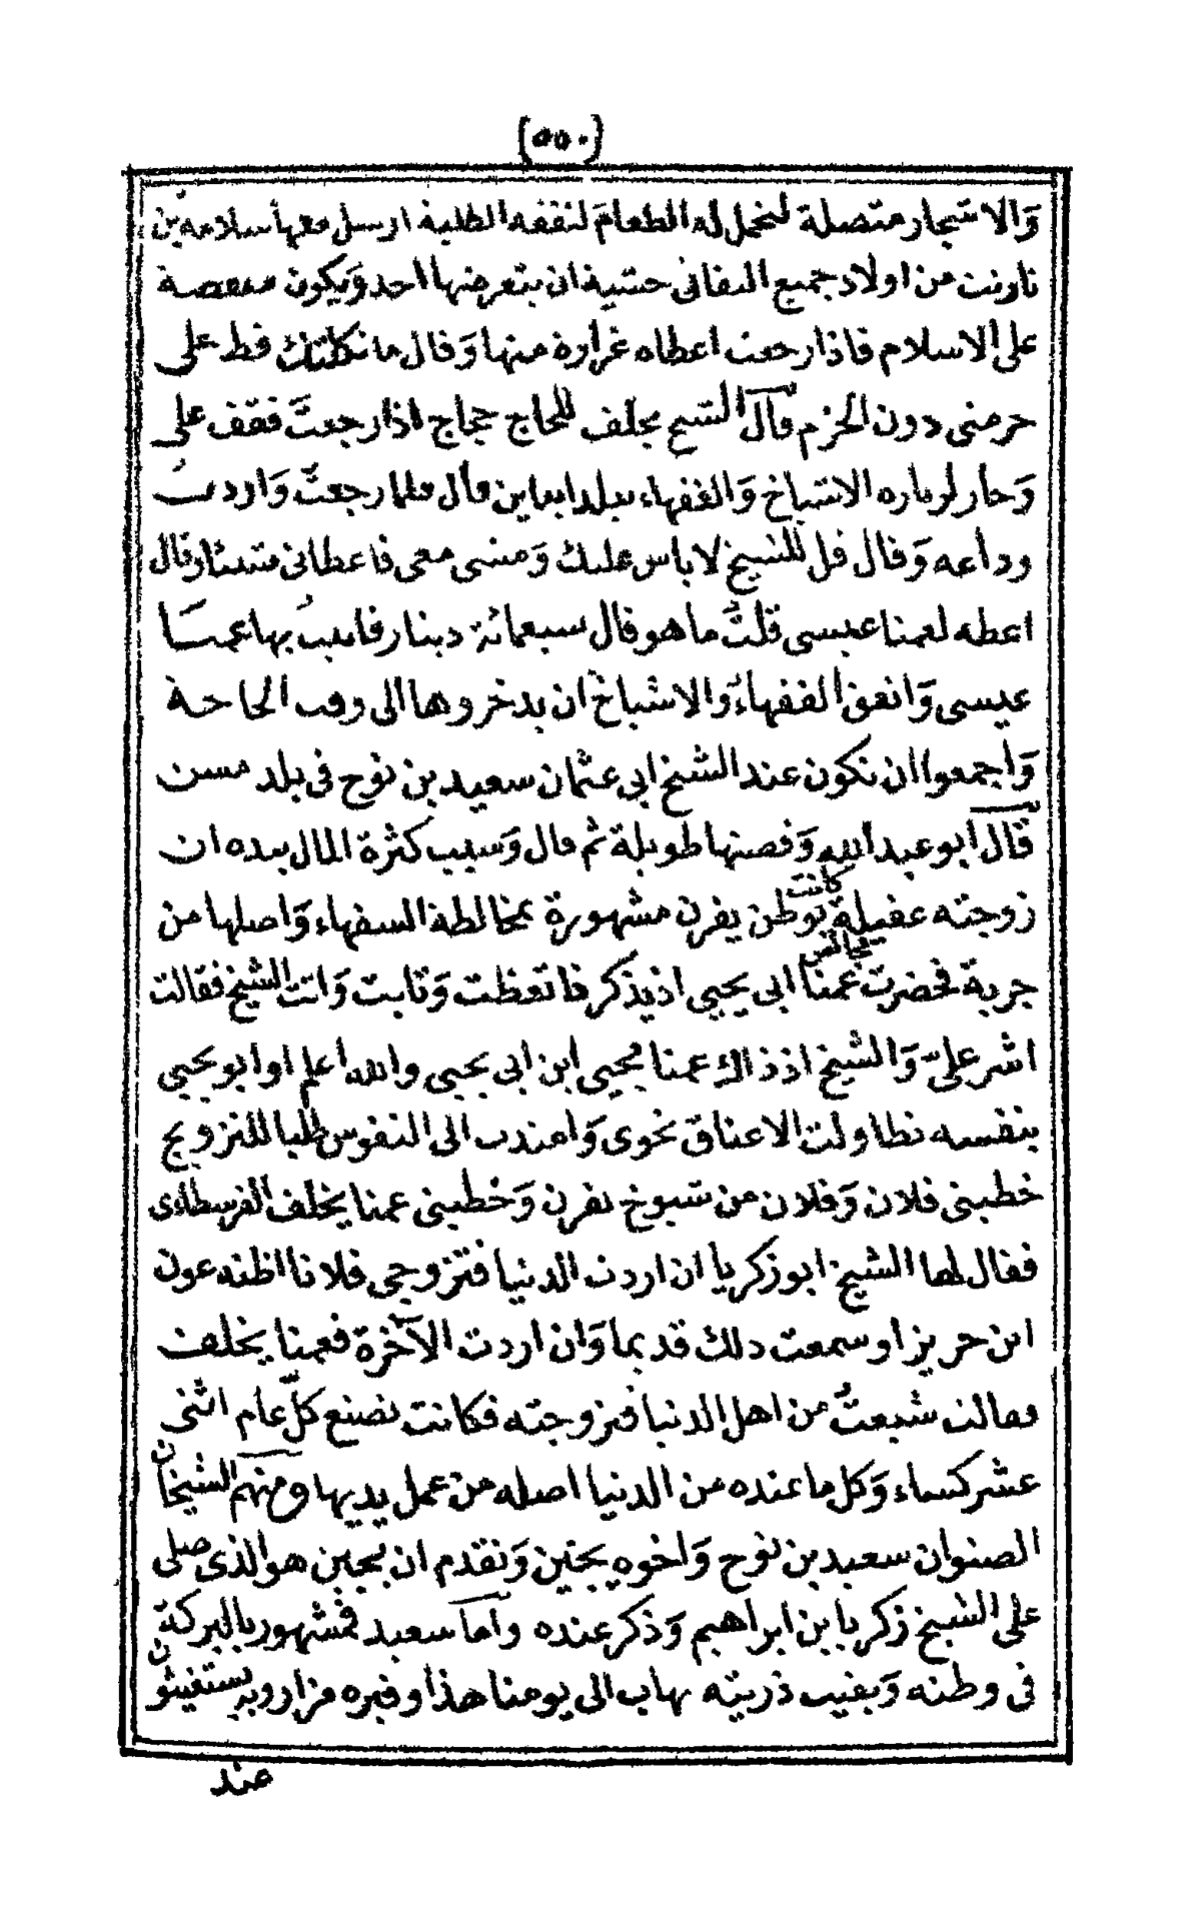 (٥٥٠)
وَالاشجار متصلة لنحمل له الطعام لنفقه الطلبة ارسل معها سلامة بن
من اولاد جميع خشية ان يتعرضها احد وَيكون منقصة
على الاسلام فاذا رجعت اعطاه غرارة منها وَقال ما نكلتك قط على
حرمنى دون الحزم قال الشيخ يخلف للحاج حجاج اذا رجعت فقف على
وَجاز لزيارة الاشياخ وَالفقهاء ببلد قال فلما رجعت وَاردت
وداعه وَقال قل للشيخ لا باس عليك وَمشى معى فاعطانى قال
اعطه لعمنا عيسى قلتُ ما هو قال سبعمائة دينار فاتيتُ بها عمنَا
عيسى وَانفق الفقهاءُ وَالاشياخ ان يدخروها الى وقت الحاجة
وَاجمعوا ان تكون عند الشيخ ابى عثمان سعيد بن نوح فى بلد
قال ابو عبد الله وَقصتها طويلة ثم قال وَسبب كثرة المال بيده ان
زوجته عقيلة كانت توطن يفرن مشهورة بمخالطة السفهاء وَاصلها من
جربة فحضرت مجالس عمنا ابى يحيى اذ يذكر فاتعظت وَتابت وَاتت الشيخ فقالت
اشر علىّ وَالشيخ اذ ذاك عمنا يحيى ابن ابى يحيى والله اعلم او ابو يحيى
بنفسه تطاولت الاعناق نحوى وَامتدت الى النفوس طلبا للتزويج
خطبنى فلان وَفلان من شيوخ يفرن وَخطبنى عمنا يخلف الفرسطاءى
فقال لها الشيخ ابو زكريا ان اردت الدنيا فتزوجى فلانا اظنه عون
ابن حريز او سمعت ذلك قديما وَان اردت الآخرة فعمنا يخلف
فقالت شبعتُ من اهل الدنيا فتزوجته فكانت تصنع كلّ عام اثنى
عشر كساء وَكل ما عنده من الدنيا اصله من عمل يديها ومنهم الشيخان
الصنوان سعيد بن نوح وَاخوه يجنين وَتقدم ان يجنين هو الذى صلى
على الشيخ زكريا بن ابراهيم وَذكر عنده وأما سعيد فمشهور بالبركة
فى وطنه وَبقيت ذريته بها الى يومنا هذا وقبره مزار وبه يستغيثون
عند